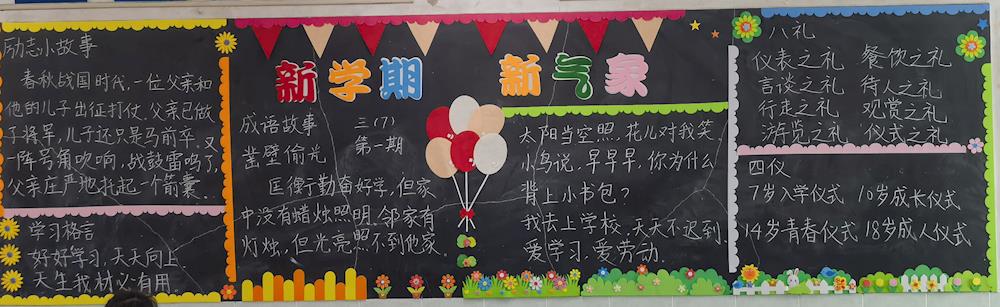 励志小故事
春秋战国时代,一位父亲和
他的儿子出征打仗.父亲已做
了将军,儿子还只是马前卒.又
一阵号角吹响,战鼓雷鸣了,
父亲庄严地托起一个箭囊.
学习格言
好好学习,天天向上
天生我材必有用.
新学期 新气象
成语故事 三(7)
第一期
凿壁偷光
匡衡勤奋好学,但家
中没有蜡烛照明.邻家有
灯烛,但光亮照不到他家.
太阳当空照,花儿对我笑
小鸟说,早早早,你为什么
背上小书包?
我去上学校,天天不迟到
爱学习,爱劳动.
八礼
仪表之礼 餐饮之礼
言谈之礼 待人之礼
行走之礼 观赏之礼
游览之礼 仪式之礼
四仪
7岁入学仪式 10岁成长仪式
14岁青春仪式 18岁成人仪式